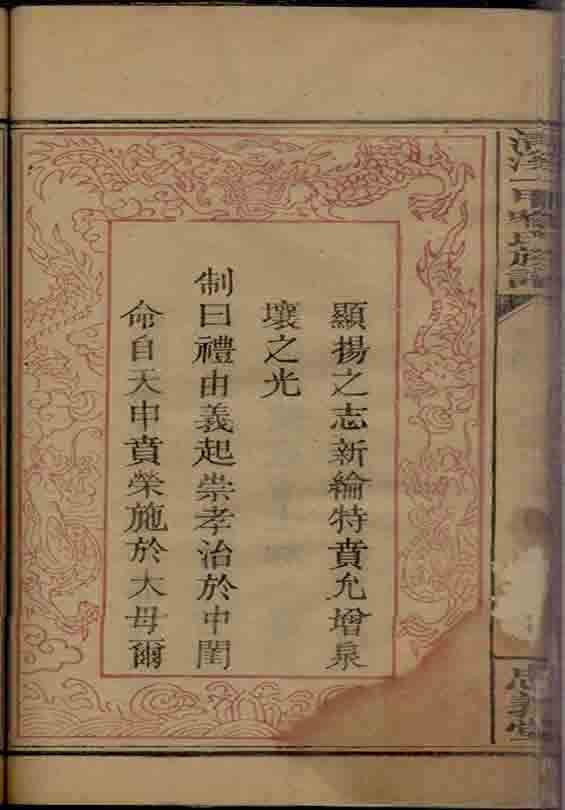 顯揚之志新綸特賁允增泉
壤之光
制曰禮由義起崇孝治於中閨
命自天申賁榮施於大母爾
忠義堂